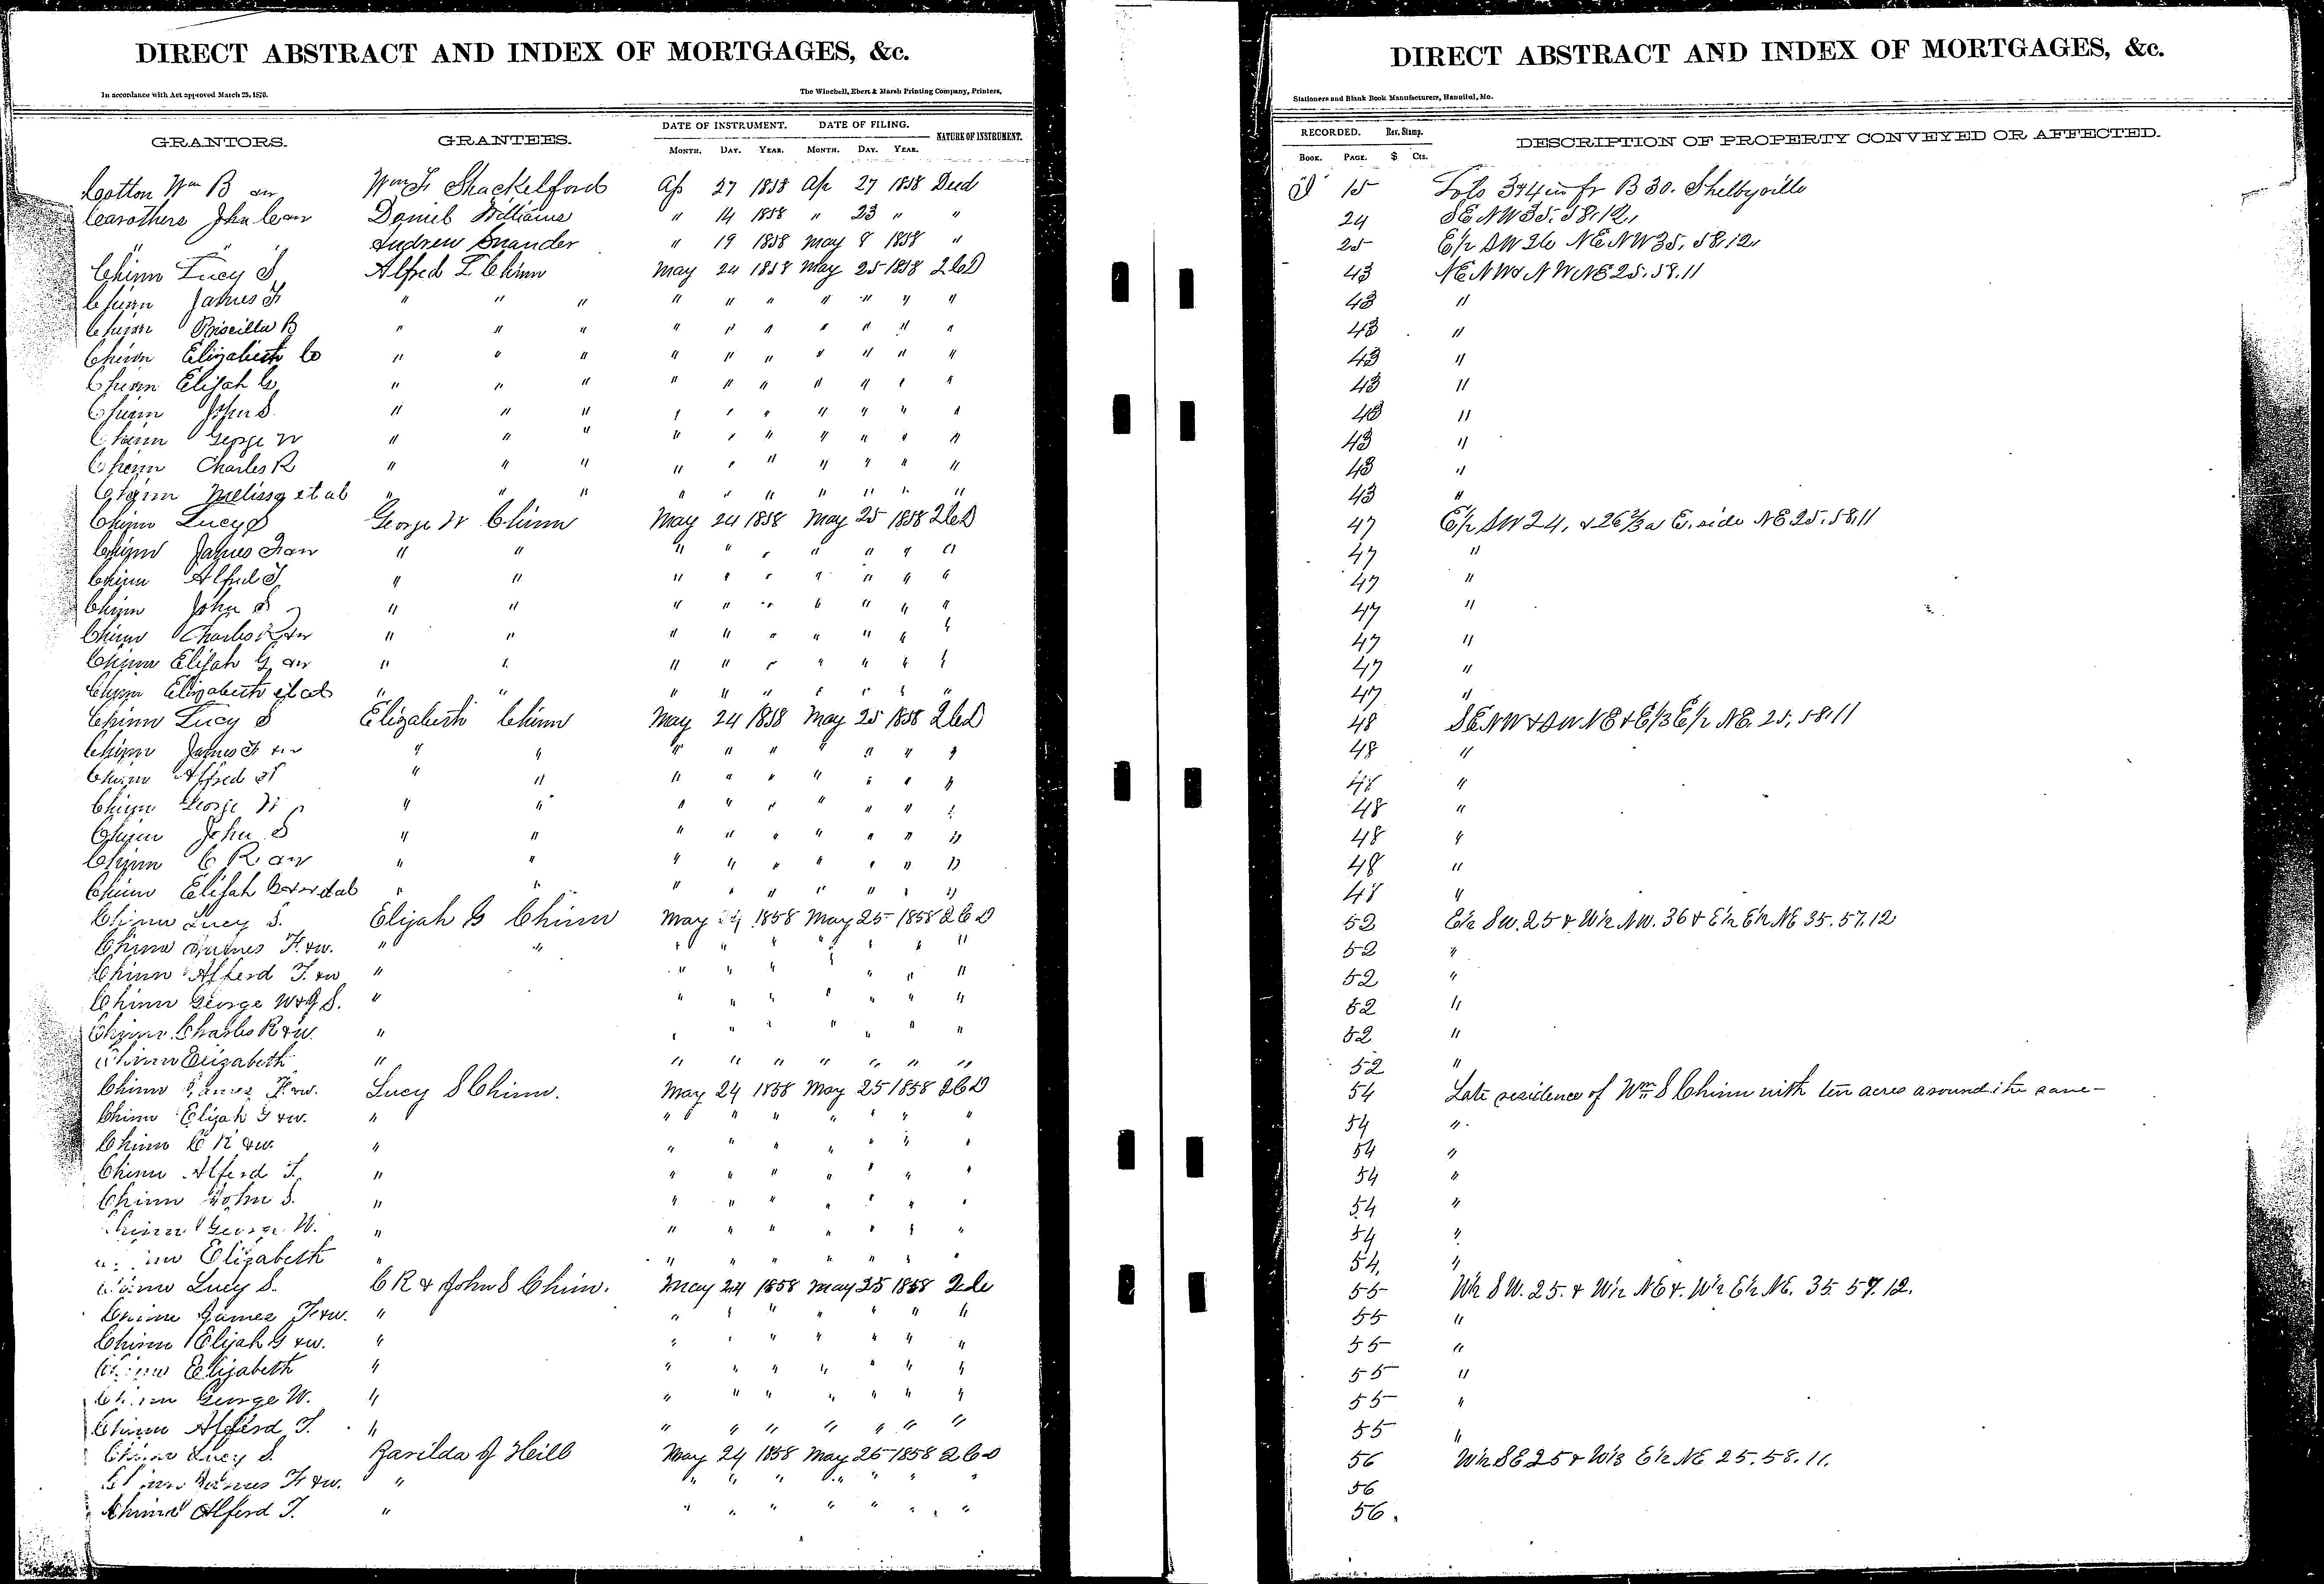 DIRECT ABSTRACT AND INDEX OF MORTGAGES, &c.
In accordance with Act approved March 25, 1870.
The Winchell, Ebert & Marsh Printing Company, Printers,
GRANTORS. GRANTEES. DATE OF INSTRUMENT. DATE OF FILING. NATURE OF INSTRUMENT.
MONTH. DAY. YEAR. MONTH. DAY. YEAR.
Cotton Wm B Wm F Shackelford Ap 27 1858 Ap 27 1858 Deed
Carothers John Daniel Williams " 14 1858 " 23 " "
" " Andrew " 19 1858 May 8 1858 "
Chinn Lucy S Alfred T Chinn May 24 1858 May 25 1858 2CD
Chinn James F " " " " " " " " " "
Chinn Priscilla B " " " " " " " " " "
Chinn Elizabeth C " " " " " " " " " "
Chinn Elijah G " " " " " " " " " "
Chinn John S. " " " " " " " " " "
Chinn George W " " " " " " " " " "
Chinn Charles R " " " " " " " " " "
Chinn Melissa et al " " " " " " " " " "
Chinn Lucy S George W Chinn May 24 1858 May 25 1858 2CD
Chinn James F &w " " " " " " " " "
Chinn Alfred T " " " " " " " " "
Chinn John S " " " " " " " " "
Chinn Charles R &w " " " " " " " " "
Chinn Elijah G &w " " " " " " " " "
Chinn Elizabeth et al " " " " " " " " "
Chinn Lucy S Elizabeth Chinn May 24 1858 May 25 1858 2CD
Chinn James F &w " " " " " " " " "
Chinn Alfred T " " " " " " " " "
Chinn George W " " " " " " " " "
Chinn John S " " " " " " " " "
Chinn C R &w " " " " " " " " "
Chinn Elijah G &w et al " " " " " " " " "
Chinn Lucy S. Elijah G Chinn May 24 1858 May 25 1858 2CD
Chinn James F. &w. " " " " " " " " "
Chinn Alferd T. &w " " " " " " "
Chinn George W & J S. " " " " " " " "
Chinn Charles R &w. " " " " " " "
Chinn Elizabeth " " " " " " " "
Chinn James F. &w. Lucy S Chinn. May 24 1858 May 25 1858 2CD
Chinn Elijah G &w. " " " " " " " "
Chinn C R &w. " " " " " " " "
Chinn Alferd T. " " " " " " " "
Chinn John S. " " " " " " " "
Chinn George W. " " " " " " " "
Chinn Elizabeth " " " " " " " "
Chinn Lucy S. C R & John S Chinn. May 24 1858 May 25 1858 2CD
Chinn James F &w. " " " " " " " "
Chinn Elijah G &w. " " " " " " " "
Chinn Elizabeth " " " " " " " "
Chinn George W. " " " " " " " "
Chinn Alferd T. " " " " " " " "
Chinn Lucy S. Zarilda J Hill May 24 1858 May 25 1858 2CD
Chinn James F &w. " " " " " " " "
Chinn Alferd T. " " " " " " " "
DIRECT ABSTRACT AND INDEX OF MORTGAGES, &c.
Stationers and Blank Book Manufacturers, Hannibal, Mo.
RECORDED. Rev. Stamp. DESCRIPTION OF PROPERTY CONVEYED OR AFFECTED.
BOOK. PAGE. $ Cts.
15 Lots 3 & 4 in fr B 30. Shelbyville
24 SE NW 35. 58. 12,
25 E½ SW 26 NE NW 35, 58. 12,
43 NE NW & NW NE 25. 58. 11
43 "
43 "
43 "
43 "
43 "
43 "
43 "
43 "
47 E½ SW 24, & 26⅔ a E. side NE 25. 58. 11
47 "
47 "
47 "
47 "
47 "
47 "
48 SE NW & SW NE & E⅓ E½ NE. 25, 58. 11
48 "
48 "
48 "
48 "
48 "
48 "
52 E½ SW. 25 & W½ NW. 36 & E½ E½ NE 35. 57. 12
52 "
52 "
52 "
52 "
52 "
54 Late residence of Wm S Chinn with ten acres around the same
54 "
54 "
54 "
54 "
54 "
54, "
55 W½ SW. 25. & W½ NE & W½ E½ NE. 35. 57. 12.
55 "
55 "
55 "
55 "
55 "
56 W½ SE 25 & W⅓ E½ NE 25. 58. 11.
56
56.